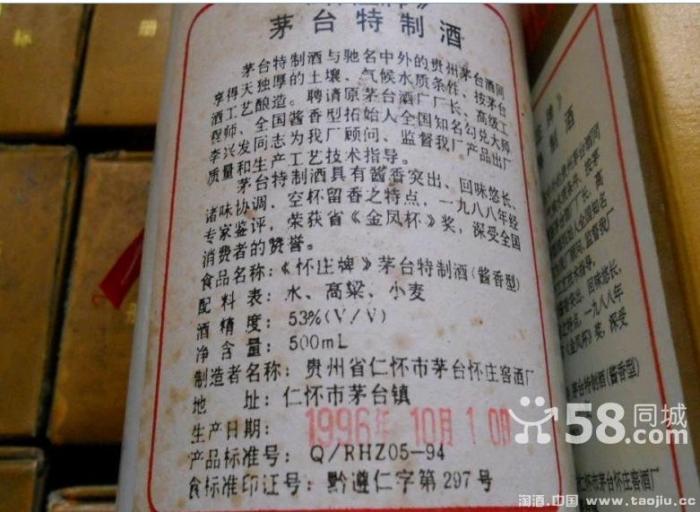 茅台特制酒
茅台特制酒与驰名中外的贵州茅台酒同
享得天独厚的土壤、气候水质条件,按茅台
酒工艺酿造。聘请原茅台酒厂厂长、高级工
程师、全国酱香型拓始人全国知名勾兑大师
李兴发同志为我厂顾问、监督我厂产品出厂
质量和生产工艺技术指导。
茅台特制酒具有酱香突出、回味悠长、
诸味协调、空杯留香之特点,一九八八年经
专家鉴评,荣获省《金凤杯》奖,深受全国
消费者的赞誉。
食品名称:《怀庄牌》茅台特制酒(酱香型)
配料表:水、高粱、小麦
酒精度:53%(V/V)
净含量:500mL
制造者名称:贵州省仁怀市茅台怀庄窖酒厂
地址:仁怀市茅台镇
生产日期:1996年10月10日
产品标准号:Q/RHZ05-94
食标准印证号:黔遵仁字第297号
制酒
回味悠长、
一九八八年
《金凤杯》奖,深受
茅台特制酒(酱香型)
仁怀市茅台怀庄窖酒厂
58同城
淘酒.中国 www.taojiu.cc